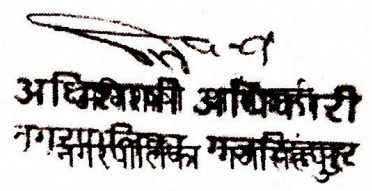 अधिशासी अधिकारी
नगरपालिका गजसिंहपुर